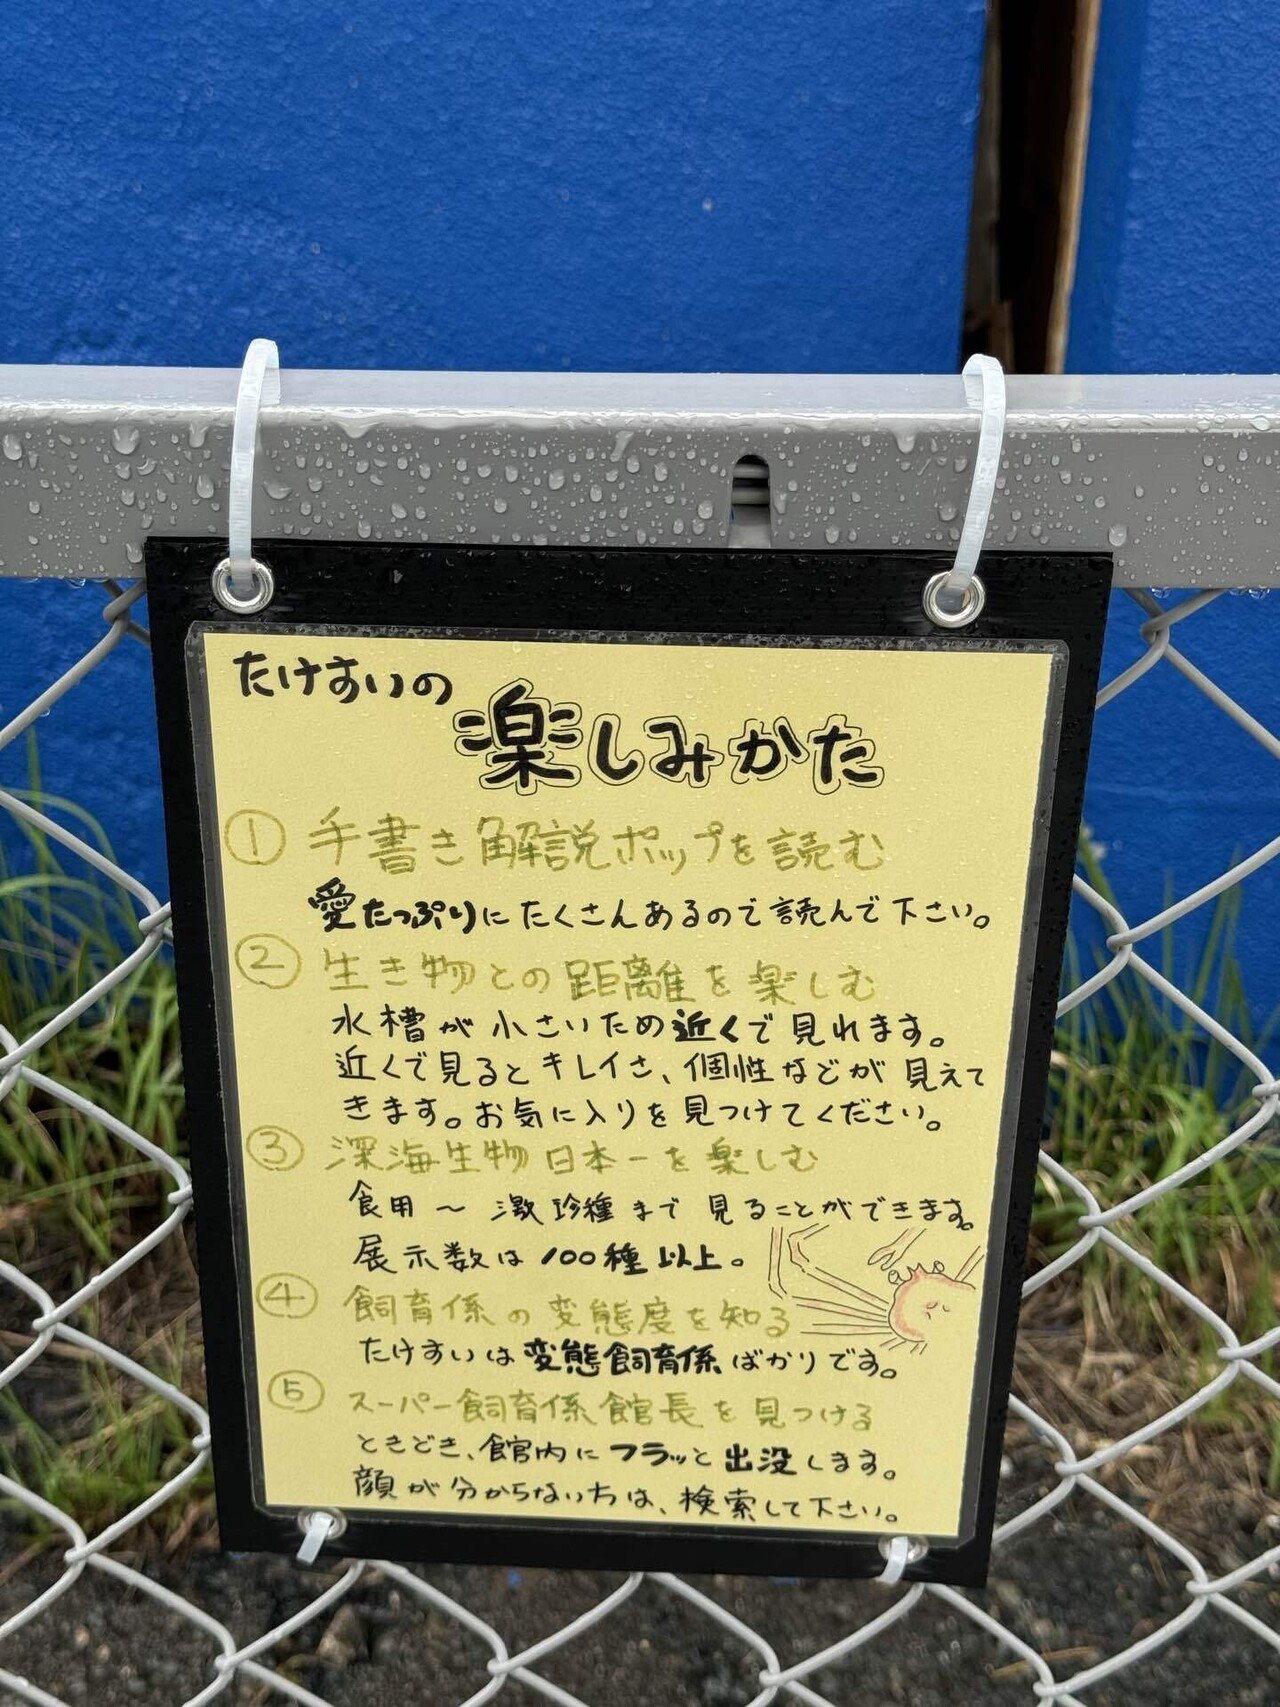 たけすいの
楽しみかた
① 手書き解説ポップを読む
愛たっぷりにたくさんあるので読んで下さい。
② 生き物との距離を楽しむ
水槽が小さいため近くで見れます。
近くで見るとキレイさ、個性などが見えて
きます。お気に入りを見つけてください。
③ 深海生物日本一を楽しむ
食用～激珍種まで見ることができます。
展示数は100種以上。
④ 飼育係の変態度を知る
たけすいは変態飼育係ばかりです。
⑤ スーパー飼育係館長を見つける
ときどき、館内にフラッと出没します。
顔が分からない方は、検索して下さい。